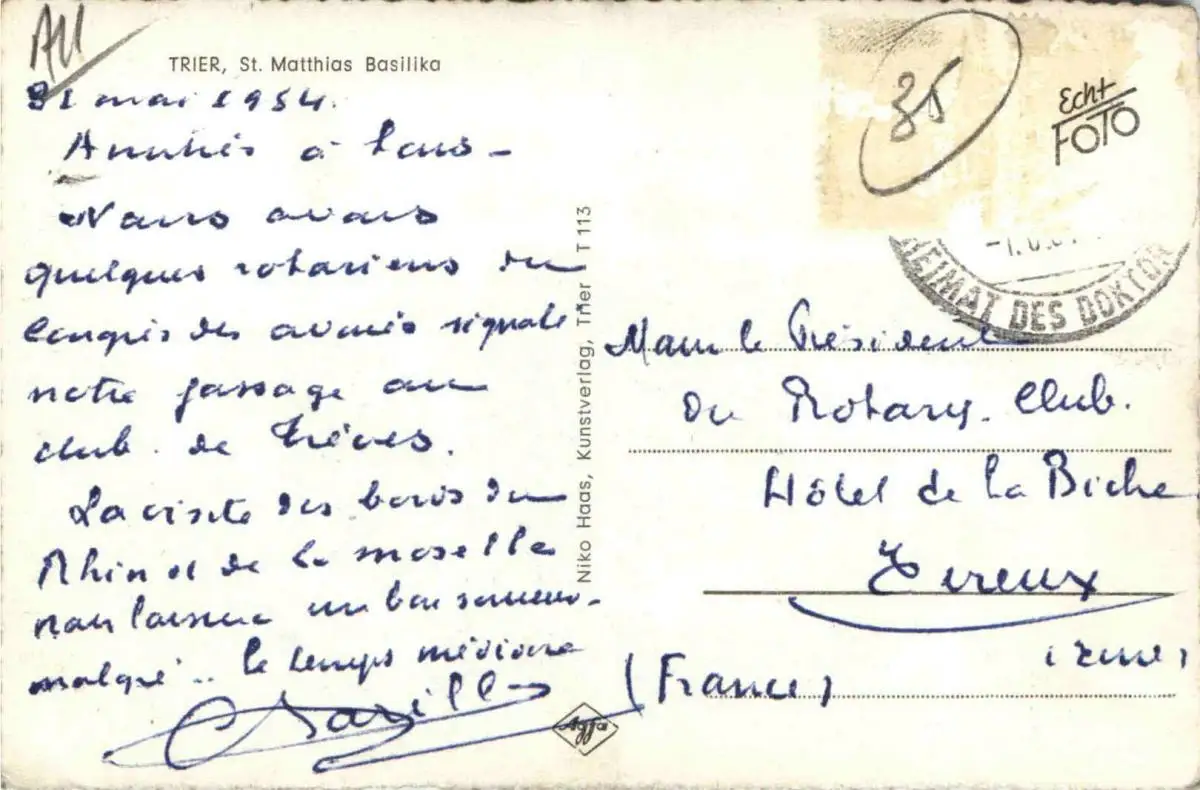 AU
TRIER, St. Matthias Basilika
31 mai 1954.
Amitiés à tous -
Nous avons
quelques rotariens du
Congrès des avoués signalé
notre passage au
club de Trèves.
La visite des bords du
Rhin et de la moselle
nous laisse un bon souvenir
malgré .. le temps médiocre
Niko Haas, Kunstverlag, Trier T 113
Agfa
35
Echt
FOTO
HEIMAT DES DOKTOR
le Président
du Rotary. Club.
Hôtel de la Biche
Evreux
(Eure)
(France)